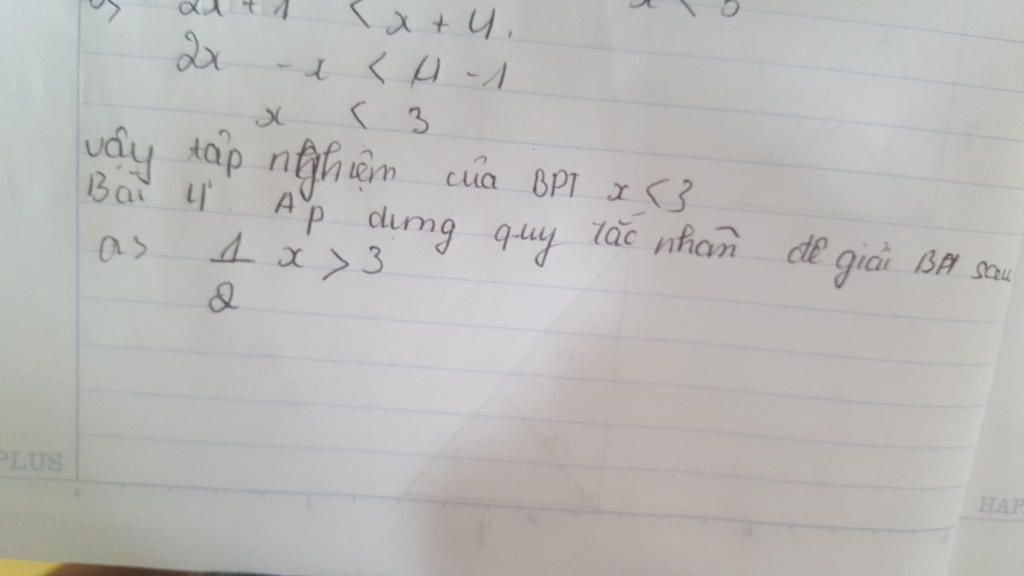 a> 2x + 1 < x + 4.
2x - x < 4 - 1
x < 3
vậy tập nghiệm của BPT x < 3
Bài 4. Áp dụng quy tắc nhân để giải BPT sau
a> 1/2 x > 3
PLUS
HAP